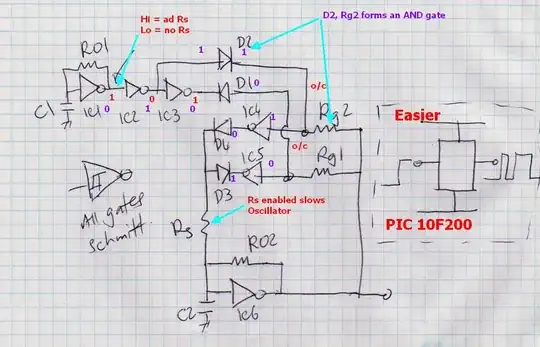 Hi = ad Rs
Lo = no Rs
D2, Rg2 forms an AND gate
RO1
D2
1
1
C1
IC1
0
1
IC2
1
0
IC3
0
1
D1
0
o/c
IC4
1
Rg2
D4
0
o/c
Rg1
IC5
0
D3
1
Easier
PIC 10F200
All gates
schmitt.
Rs
Rs enabled slows
Oscillator
RO2
C2
IC6